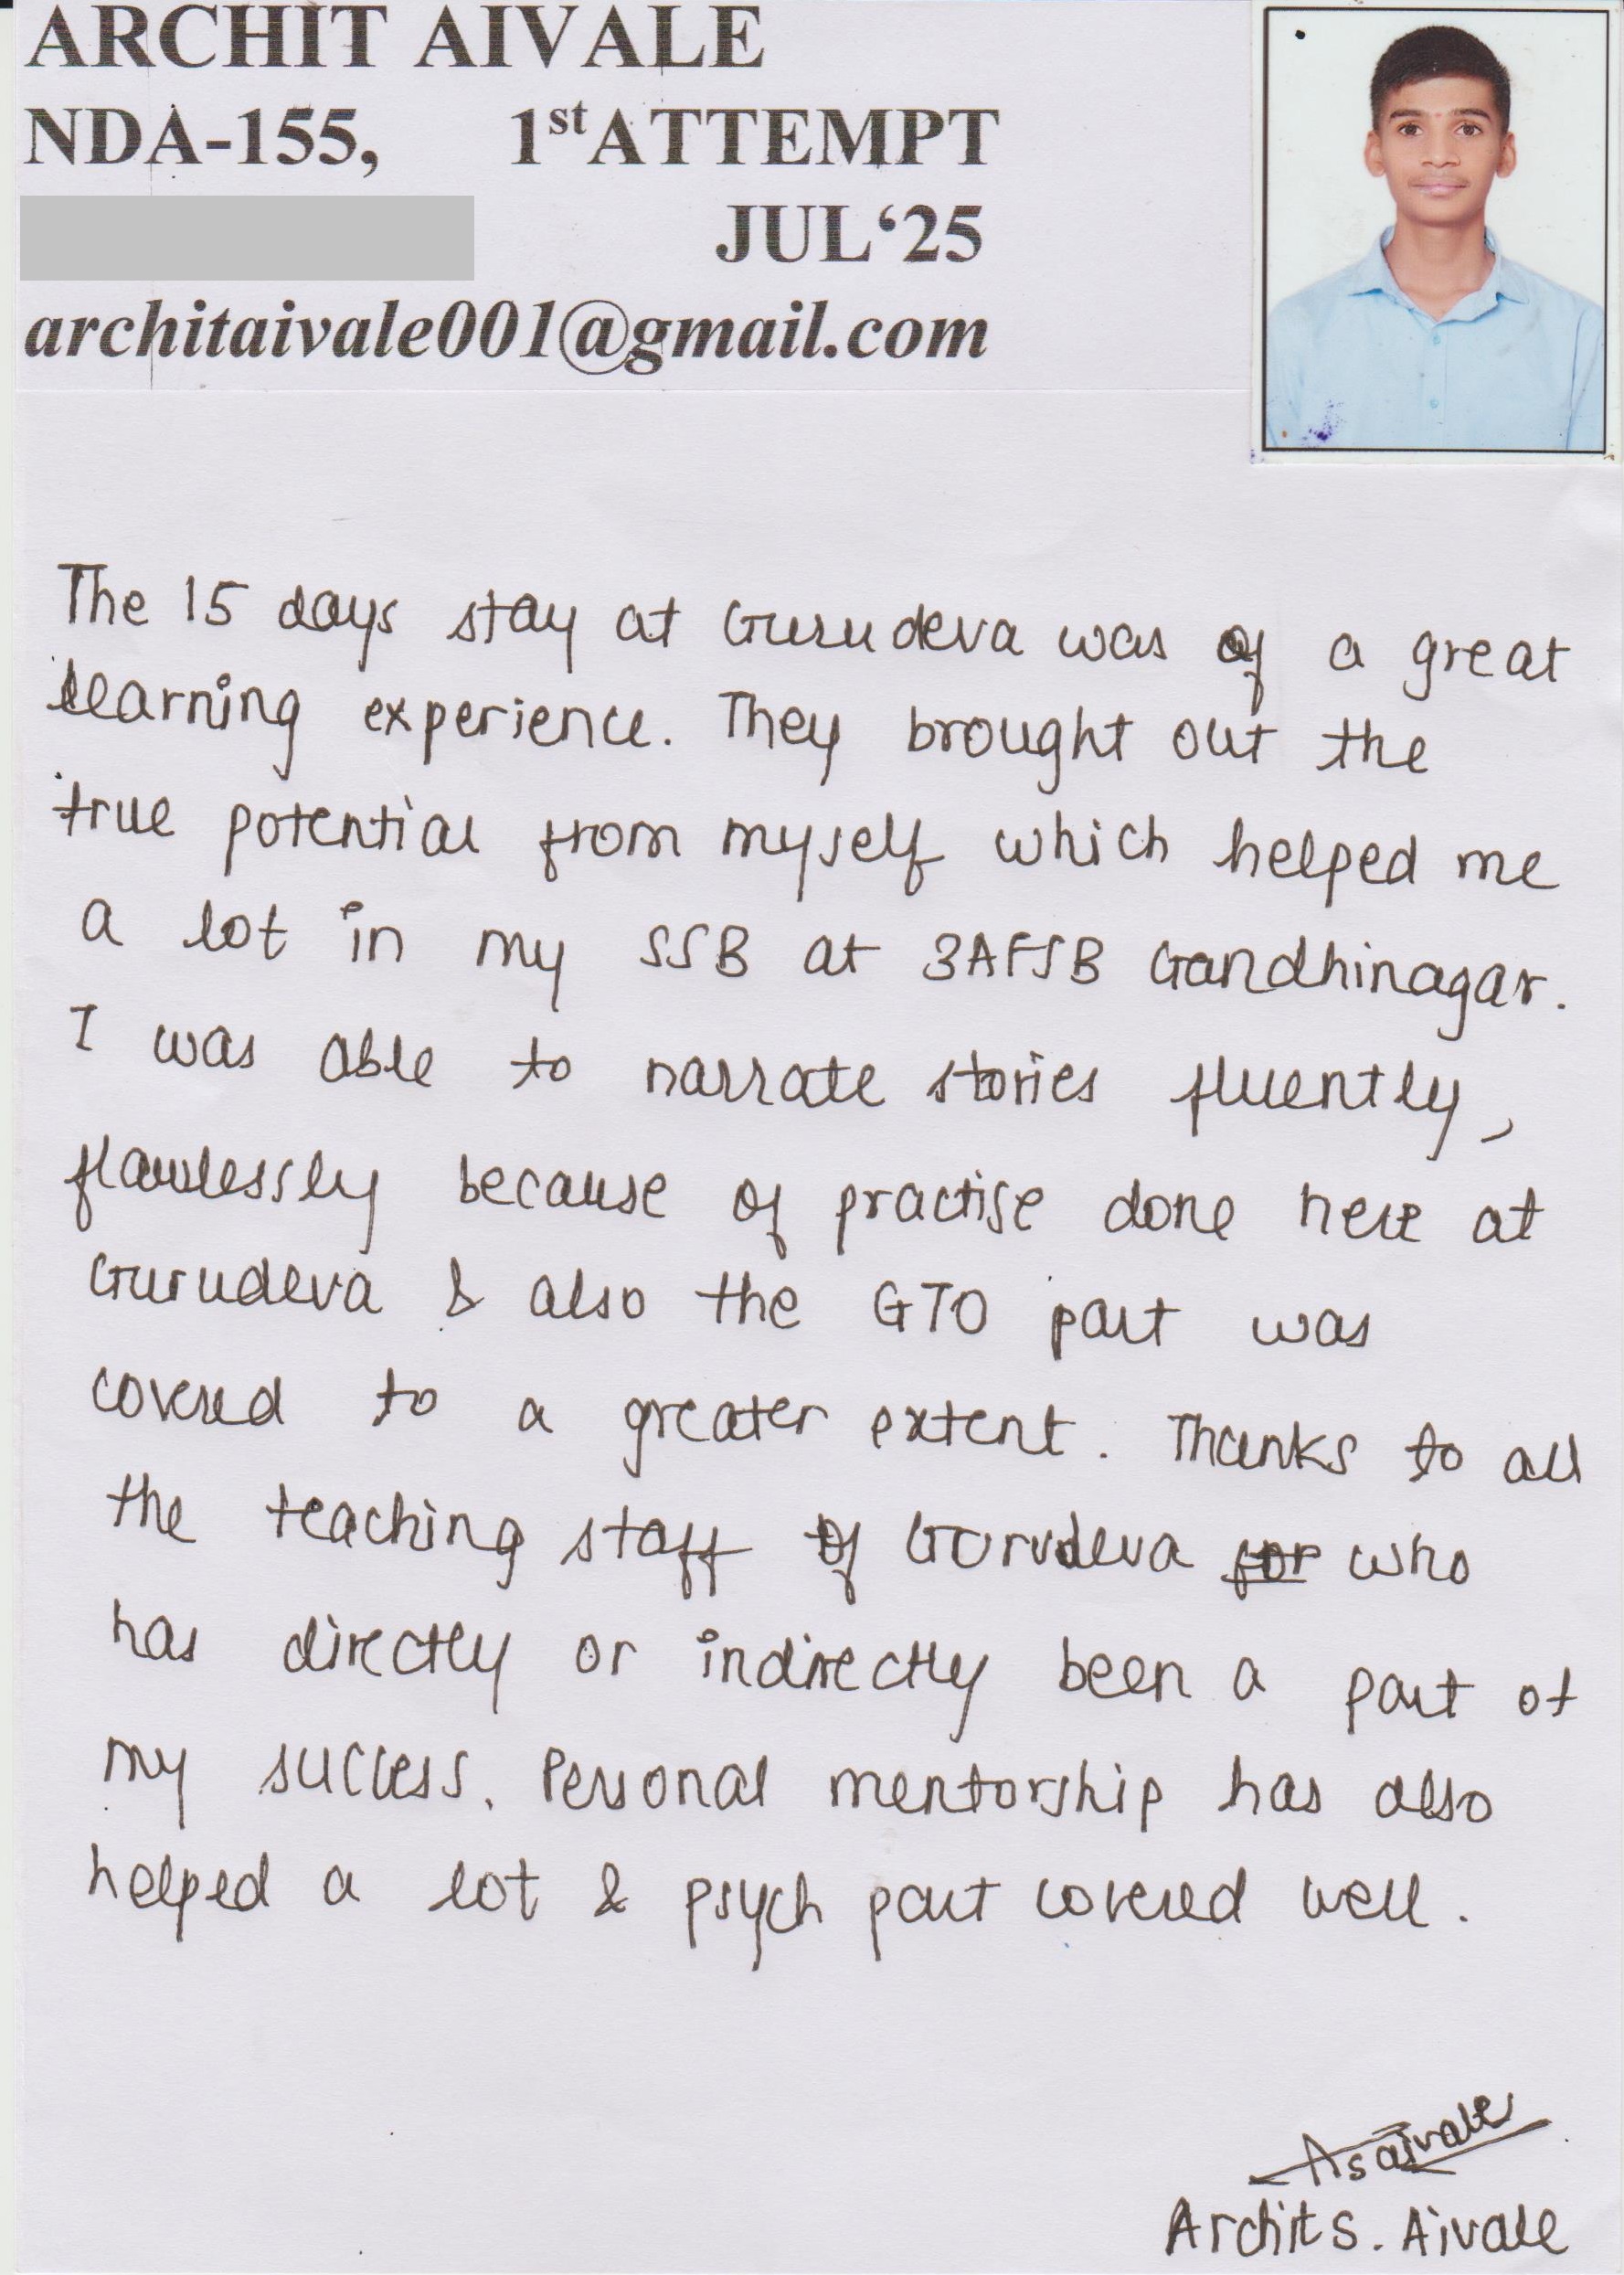 ARCHIT AIVALE
NDA-155, 1st ATTEMPT
JUL‘25
architaivale001@gmail.com
The 15 days stay at Gurudeva was of a great
learning experience. They brought out the
true potential from myself which helped me
a lot in my SSB at 3AFSB Gandhinagar.
I was able to narrate stories fluently,
flawlessly because of practise done here at
Gurudeva & also the GTO part was
covered to a greater extent. Thanks to all
the teaching staff of Gurudeva for who
has directly or indirectly been a part of
my success. Personal mentorship has also
helped a lot & psych part covered well.
Asaivale
Archit S. Aivale